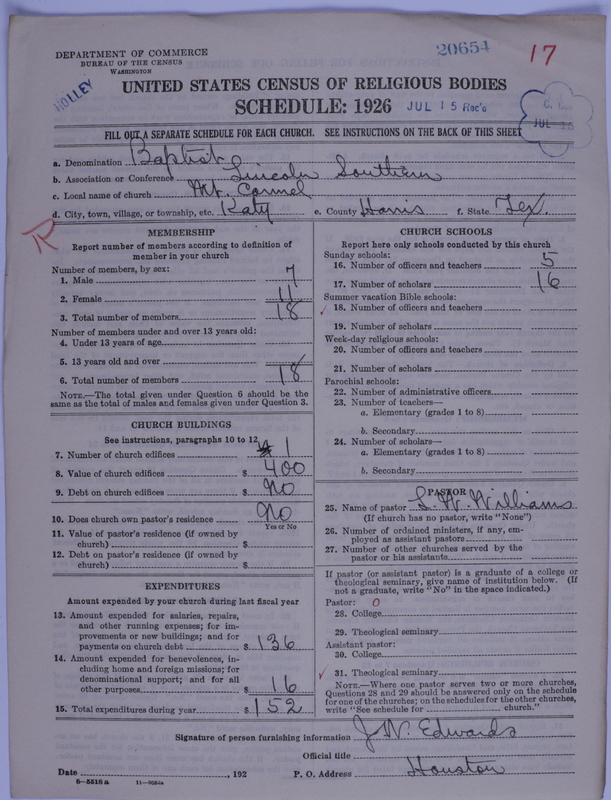 DEPARTMENT OF COMMERCE
BUREAU OF THE CENSUS
WASHINGTON
20654
17
HOLLEY
UNITED STATES CENSUS OF RELIGIOUS BODIES
SCHEDULE: 1926
JUL 15 Rec'd
JUL 15
FILL OUT A SEPARATE SCHEDULE FOR EACH CHURCH. SEE INSTRUCTIONS ON THE BACK OF THIS SHEET
a. Denomination Baptist
b. Association or Conference Lincoln Southern
c. Local name of church Mt. Carmel
d. City, town, village, or township, etc. Katy e. County Harris f. State Tex.
R
MEMBERSHIP
Report number of members according to definition of
member in your church
Number of members, by sex:
1. Male 7
2. Female 11
3. Total number of members 18
Number of members under and over 13 years old:
4. Under 13 years of age
5. 13 years old and over
6. Total number of members 18
NOTE.—The total given under Question 6 should be the
same as the total of males and females given under Question 3.
CHURCH BUILDINGS
See instructions, paragraphs 10 to 12
7. Number of church edifices 1
8. Value of church edifices $ 400
9. Debt on church edifices $ No
10. Does church own pastor's residence No
Yes or No
11. Value of pastor's residence (if owned by
church) $
12. Debt on pastor's residence (if owned by
church) $
EXPENDITURES
Amount expended by your church during last fiscal year
13. Amount expended for salaries, repairs,
and other running expenses; for im-
provements or new buildings; and for
payments on church debt $ 136
14. Amount expended for benevolences, in-
cluding home and foreign missions; for
denominational support; and for all
other purposes $ 16
15. Total expenditures during year $ 152
CHURCH SCHOOLS
Report here only schools conducted by this church
Sunday schools:
16. Number of officers and teachers 5
17. Number of scholars 16
Summer vacation Bible schools:
18. Number of officers and teachers
19. Number of scholars
Week-day religious schools:
20. Number of officers and teachers
21. Number of scholars
Parochial schools:
22. Number of administrative officers
23. Number of teachers—
a. Elementary (grades 1 to 8)
b. Secondary
24. Number of scholars—
a. Elementary (grades 1 to 8)
b. Secondary
PASTOR
25. Name of pastor L. W. Williams
(If church has no pastor, write "None")
26. Number of ordained ministers, if any, em-
ployed as assistant pastors
27. Number of other churches served by the
pastor or his assistants
If pastor (or assistant pastor) is a graduate of a college or
theological seminary, give name of institution below. (If
not a graduate, write "No" in the space indicated.)
Pastor: 0
28. College
29. Theological seminary
Assistant pastor:
30. College
31. Theological seminary
NOTE.—Where one pastor serves two or more churches,
Questions 28 and 29 should be answered only on the schedule
for one of the churches; on the schedules for the other churches,
write "See schedule for church."
Signature of person furnishing information J. W. Edwards
Official title
Date , 192 P. O. Address Houston
6—5518 a 11—9034a